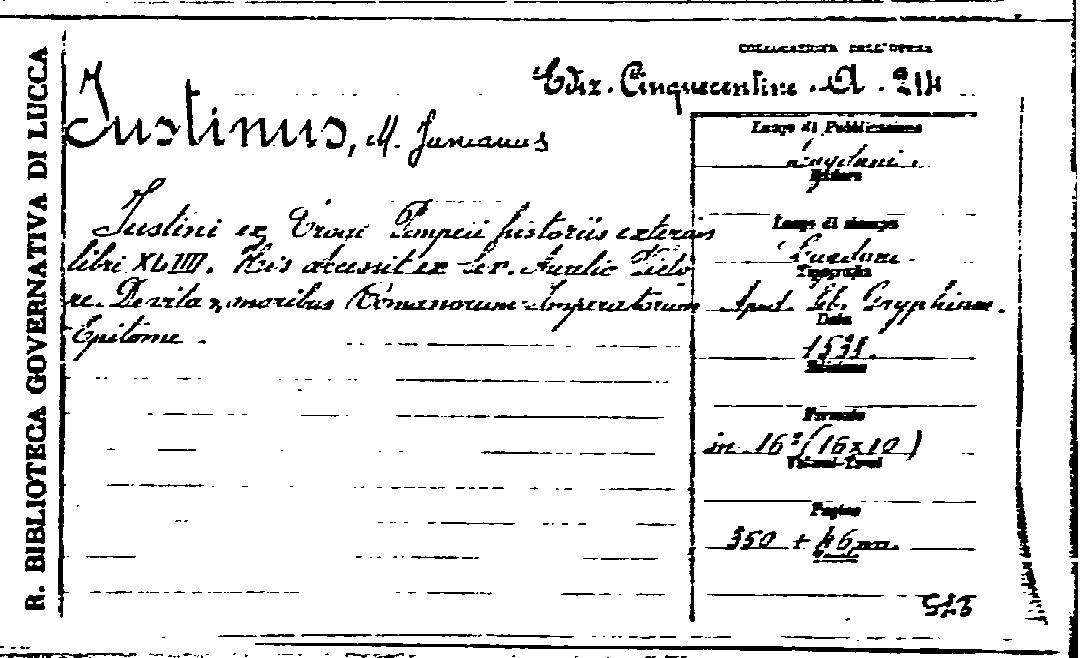 R. BIBLIOTECA GOVERNATIVA DI LUCCA
COLLOCAZIONE DELL'OPERA
Ediz. Cinquecentine . A . 214
Iustinus, M. Junianus
Iustini ex Trogi Pompeii historiis externis
libri XLIIII. His accessit ex Sex. Aurelio Victo
re. De vita et moribus Romanorum Imperatorum
Epitome .
Luogo di Pubblicazione
Lugduni .
Editore
Luogo di stampa
Lugduni .
Tipografia
Apud. Seb. Gryphium.
Data
1538.
Edizione
Formato
in 16° (16x10)
Volumi-Tomi
Pagine
350 + 46 nn.